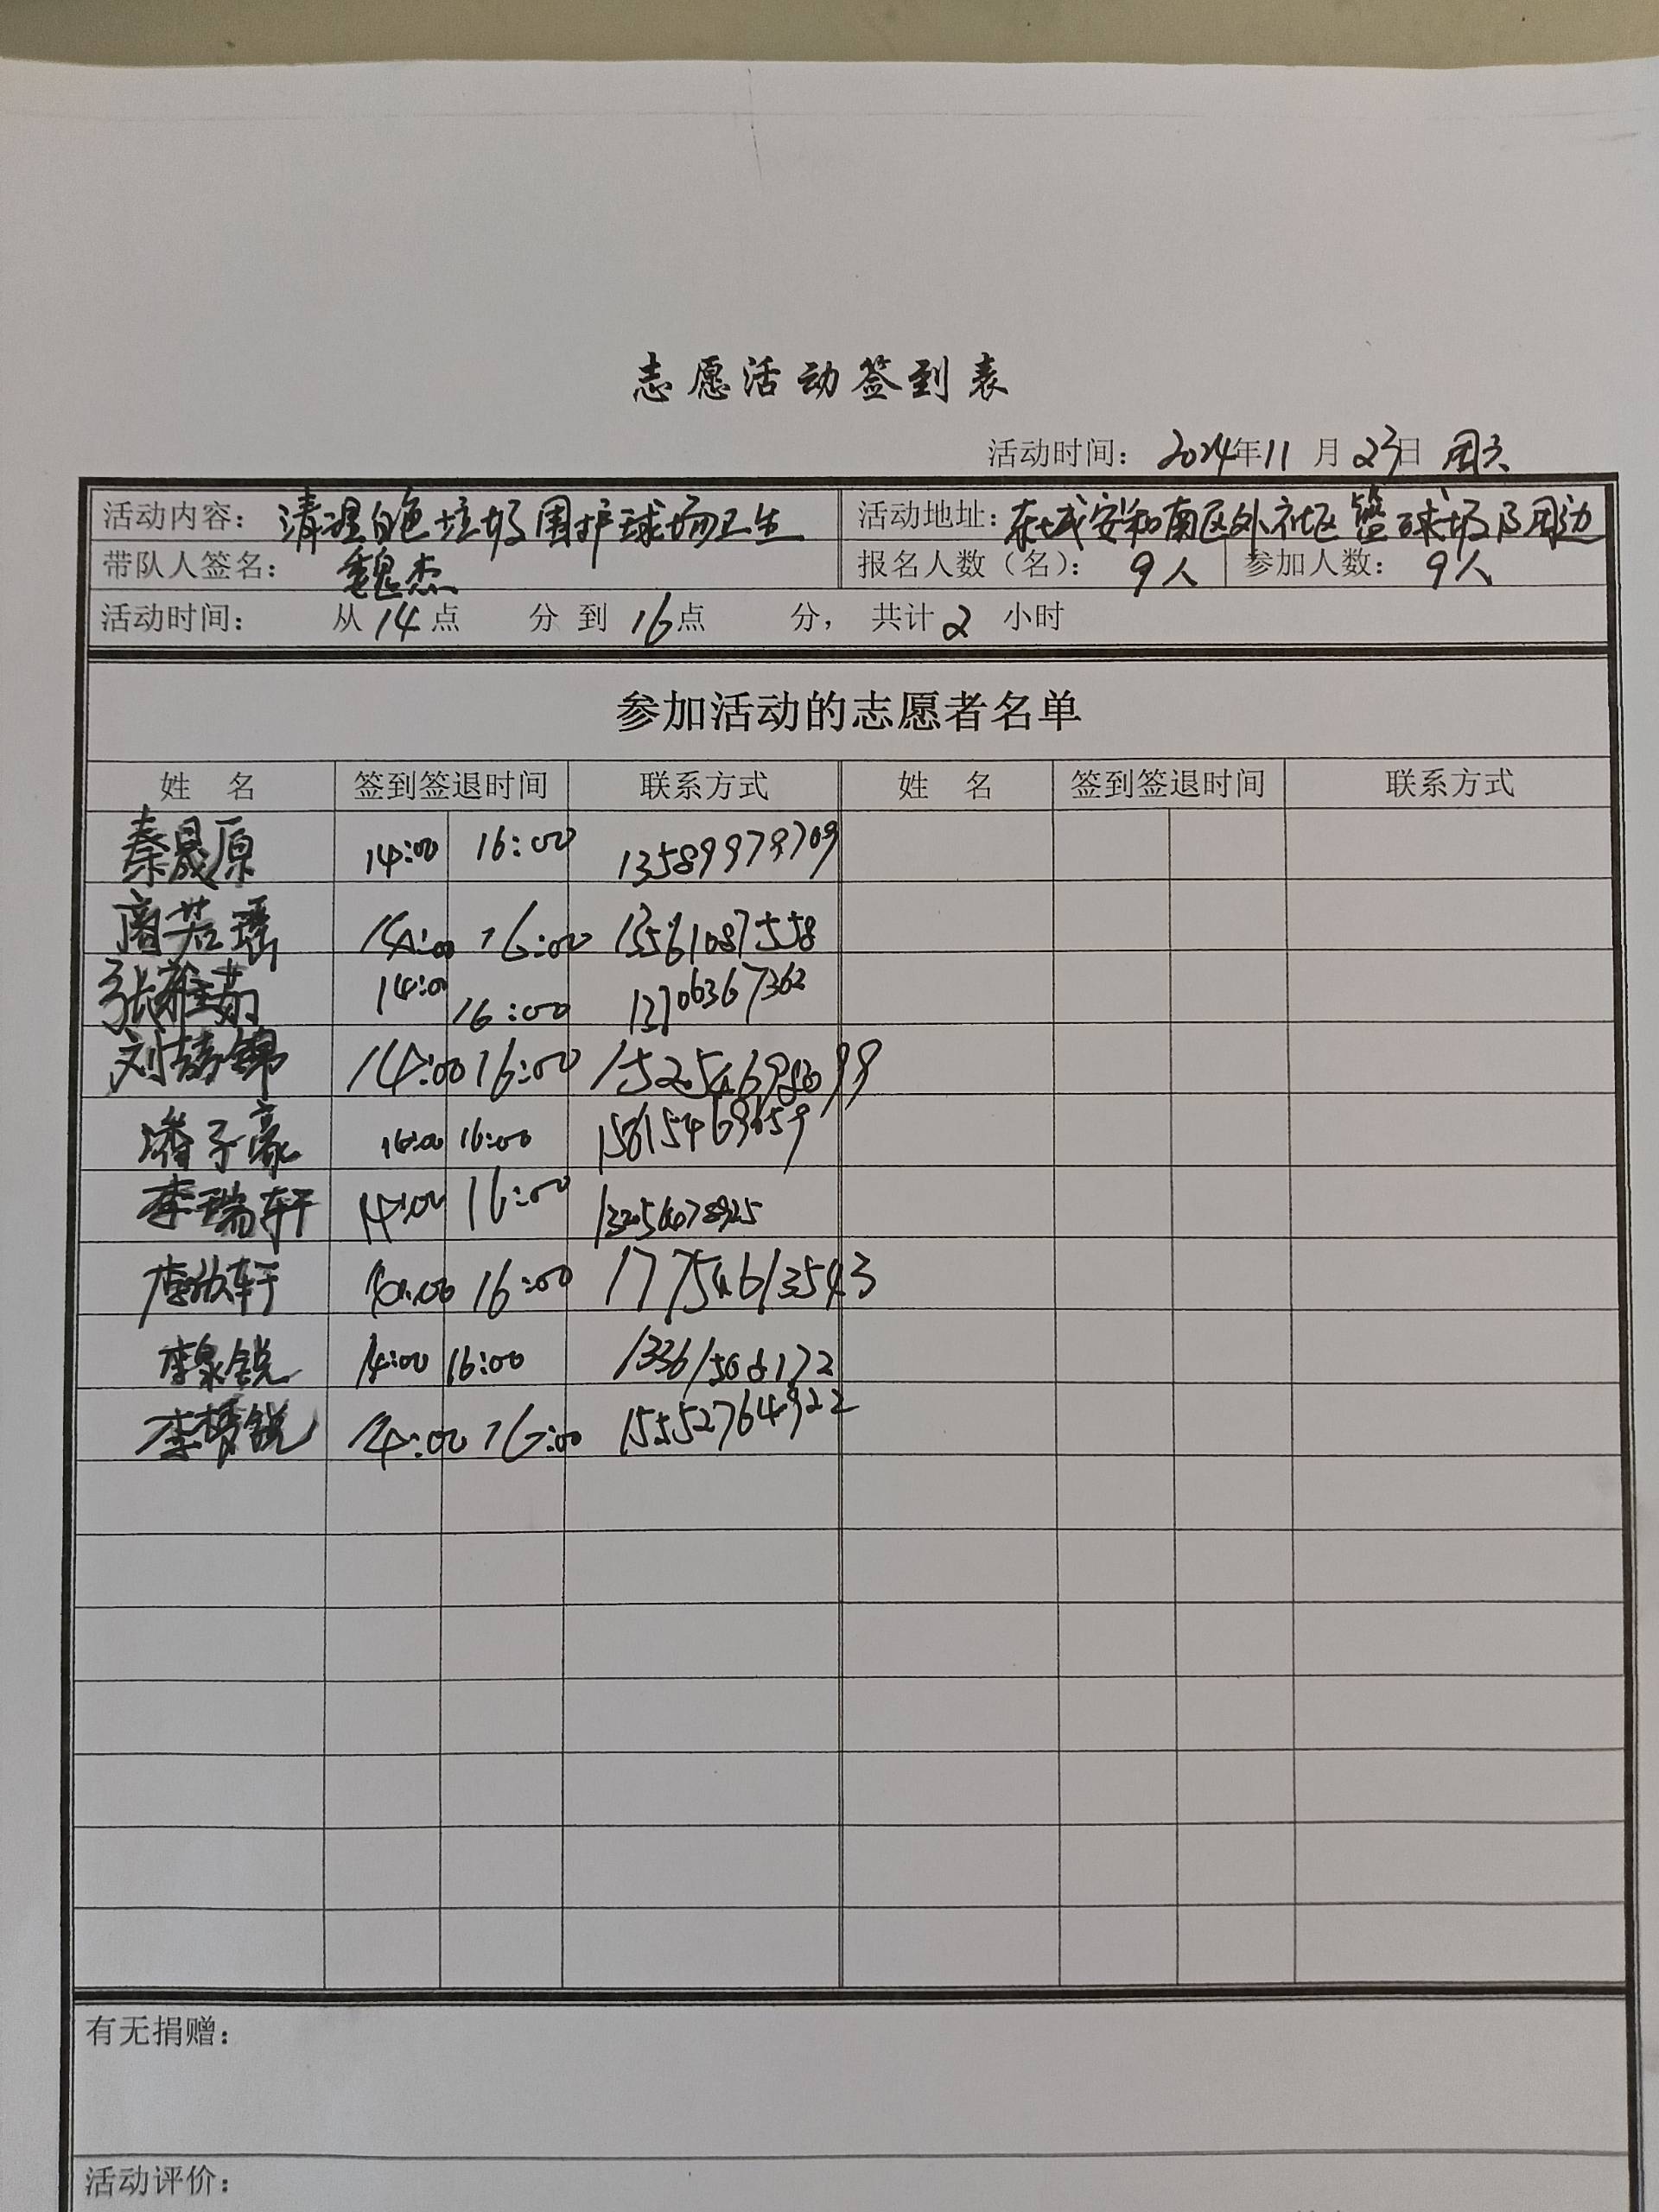 志愿活动签到表
活动时间：2024年11月23日 周六
活动内容：清理白色垃圾围护球场卫生 活动地址：东城安和南区外社区篮球场及周边
带队人签名：魏杰 报名人数（名）：9人 参加人数：9人
活动时间： 从14点 分到16点 分，共计2小时
参加活动的志愿者名单
姓 名 签到签退时间 联系方式 姓 名 签到签退时间 联系方式
秦晟原 14:00 16:00
商若瑶 14:00 16:00 13561087558
张雅茹 14:00 16:00 13706367362
14:00 16:00
潘子豪 16:00 16:00 15615469659
李瑞轩 14:00 16:00
16:00 17754613543
李泉锐 14:00 16:00 13361506172
14:00 16:00 15552764922
有无捐赠：
活动评价：